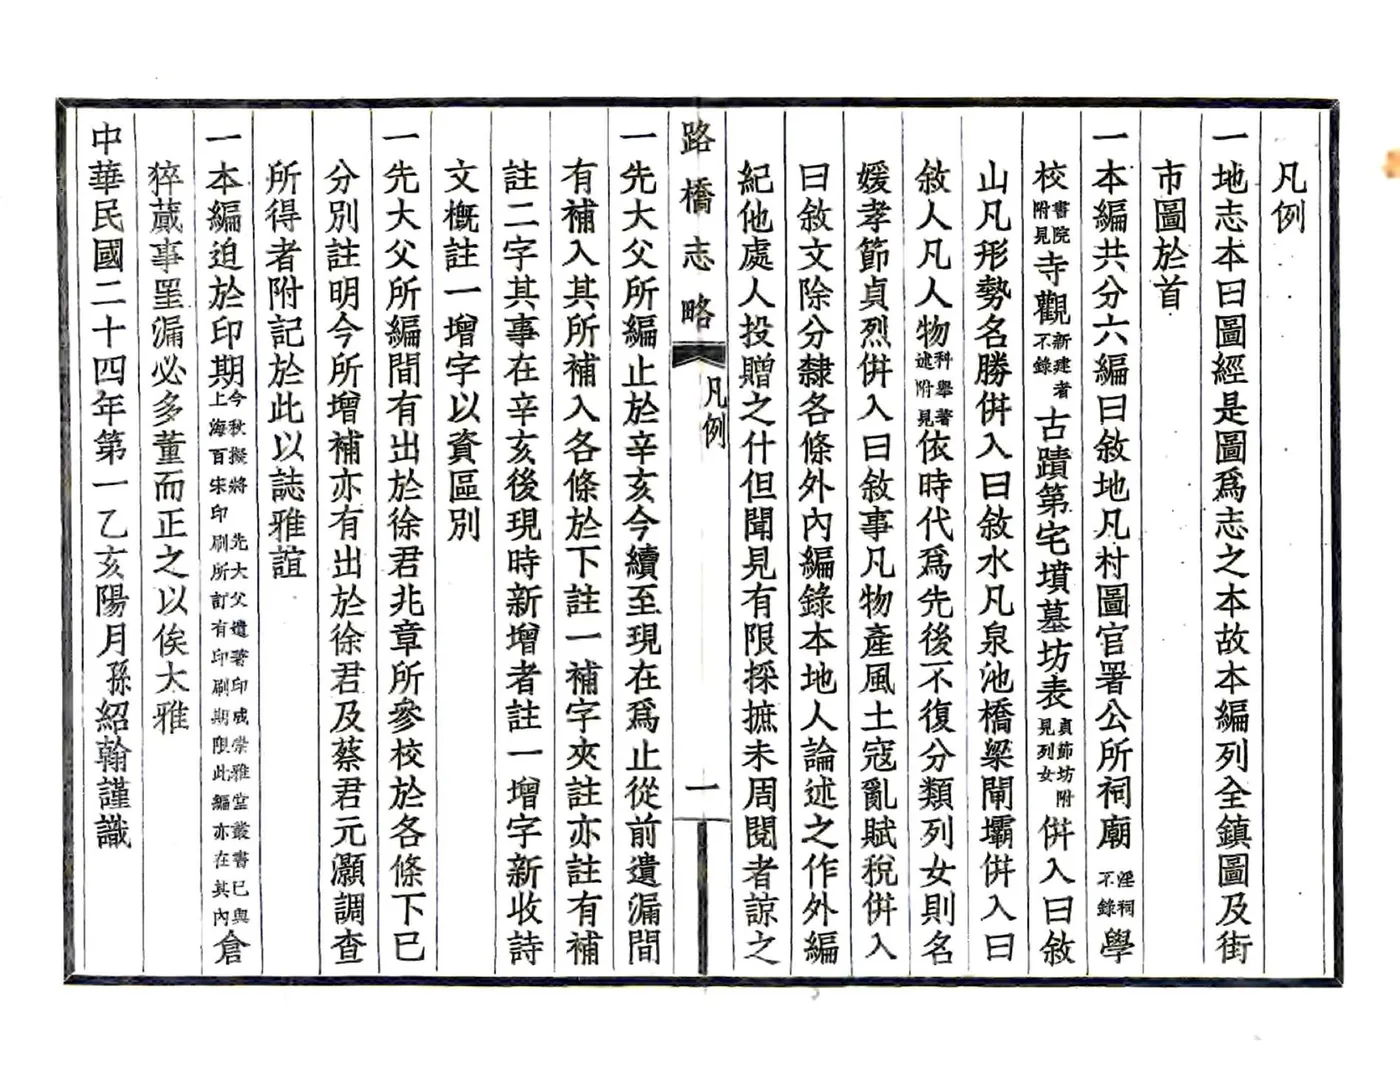 凡例
一地志本曰圖經是圖爲志之本故本編列全鎮圖及街
市圖於首
一本編共分六編曰敘地凡村圖官署公所祠廟淫祠不錄學
校書院附見寺觀新建者不錄古蹟第宅墳墓坊表貞節坊附見列女倂入曰敘
山凡形勢名勝倂入曰敘水凡泉池橋梁閘壩倂入曰
敘人凡人物科舉著述附見依時代爲先後不復分類列女則名
媛孝節貞烈倂入曰敘事凡物產風土寇亂賦稅倂入
曰敘文除分隸各條外內編錄本地人論述之作外編
紀他處人投贈之什但聞見有限採摭未周閱者諒之
路橋志略
凡例
一
一先大父所編止於辛亥今續至現在爲止從前遺漏間
有補入其所補入各條於下註一補字夾註亦註有補
註二字其事在辛亥後現時新增者註一增字新收詩
文槪註一增字以資區別
一先大父所編間有出於徐君兆章所參校於各條下已
分別註明今所增補亦有出於徐君及蔡君元灝調查
所得者附記於此以誌雅誼
一本編迫於印期今秋擬將先大父遺著印成崇雅堂叢書已與上海百宋印刷所訂有印刷期限此編亦在其內倉
猝蕆事罣漏必多董而正之以俟大雅
中華民國二十四年第一乙亥陽月孫紹翰謹識